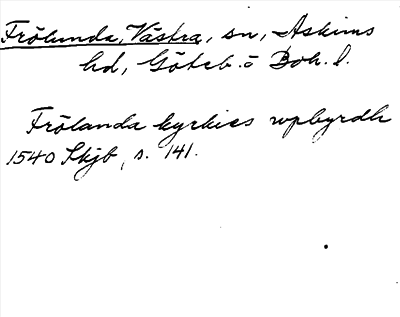 Frölunda, Västra, sn, Askims
hd, Göteb. o Boh. l.
Frölanda kyrkies wpbyrdh
1540 Skjb, s. 141.